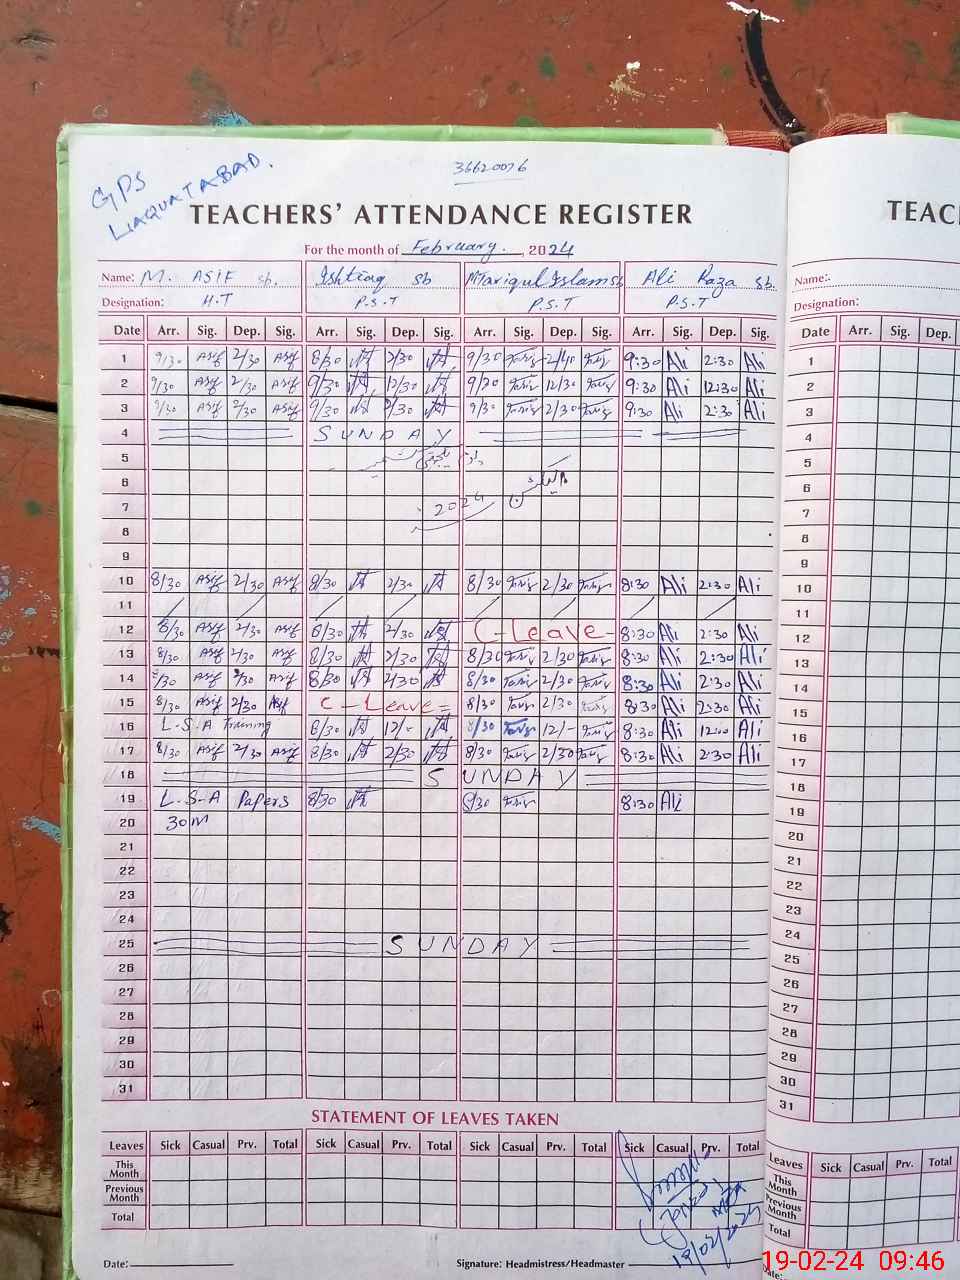 GPS
LIAQUATABAD.
36620076
TEACHERS' ATTENDANCE REGISTER
TEAC
For the month of February. 2024
Name: M. ASIF sb. Ishtiaq sb M Tariqul Islam sb Ali Raza sb.
Name:
Designation: H.T P.S.T P.S.T P.S.T
Designation:
Date Arr. Sig. Dep. Sig. Arr. Sig. Dep. Sig. Arr. Sig. Dep. Sig. Arr. Sig. Dep. Sig.
Date Arr. Sig. Dep.
1 9/30 Asif 2/30 Asif 8/30 2/30 9/30 Tariq 2/40 Tariq 9:30 Ali 2:30 Ali
2 9/30 Asif 2/30 Asif 9/30 12/30 9/20 Tariq 12/30 Tariq 9:30 Ali 12:30 Ali
3 9/30 Asif 2/30 Asif 9/30 2/30 9/30 Tariq 2/30 Tariq 9:30 Ali 2:30 Ali
4 SUNDAY
5
6
7 2024
8
9
10 8/30 Asif 2/30 Asif 8/30 2/30 8/30 Tariq 2/30 Tariq 8:30 Ali 2:30 Ali
11
12 8/30 Asif 2/30 Asif 8/30 2/30 C-Leave- 8:30 Ali 2:30 Ali
13 8/30 Asif 2/30 Asif 8/30 2/30 8/30 Tariq 2/30 Tariq 8:30 Ali 2:30 Ali
14 8/30 Asif 2/30 Asif 8/30 2/30 8/30 Tariq 2/30 Tariq 8:30 Ali 2:30 Ali
15 8/30 Asif 2/30 Asif C-Leave= 8/30 Tariq 2/30 Tariq 8:30 Ali 2:30 Ali
16 L.S.A Training 8/30 12/- 8/30 Tariq 12/- Tariq 8:30 Ali 12:00 Ali
17 8/30 Asif 2/30 Asif 8/30 2/30 8/30 Tariq 2/30 Tariq 8:30 Ali 2:30 Ali
18 SUNDAY
19 L.S.A Papers 8/30 8/30 Tariq 8:30 Ali
20 30M
21
22
23
24
25 SUNDAY
26
27
28
29
30
31
1
2
3
4
5
6
7
8
9
10
11
12
13
14
15
16
17
18
19
20
21
22
23
24
25
26
27
28
29
30
31
STATEMENT OF LEAVES TAKEN
Leaves Sick Casual Prv. Total Sick Casual Prv. Total Sick Casual Prv. Total Sick Casual Prv. Total
This Month
Previous Month
Total
Leaves Sick Casual Prv. Total
This Month
Previous Month
Total
MEA
19/02/2024
Date: Signature: Headmistress/Headmaster
Date:
19-02-24 09:46